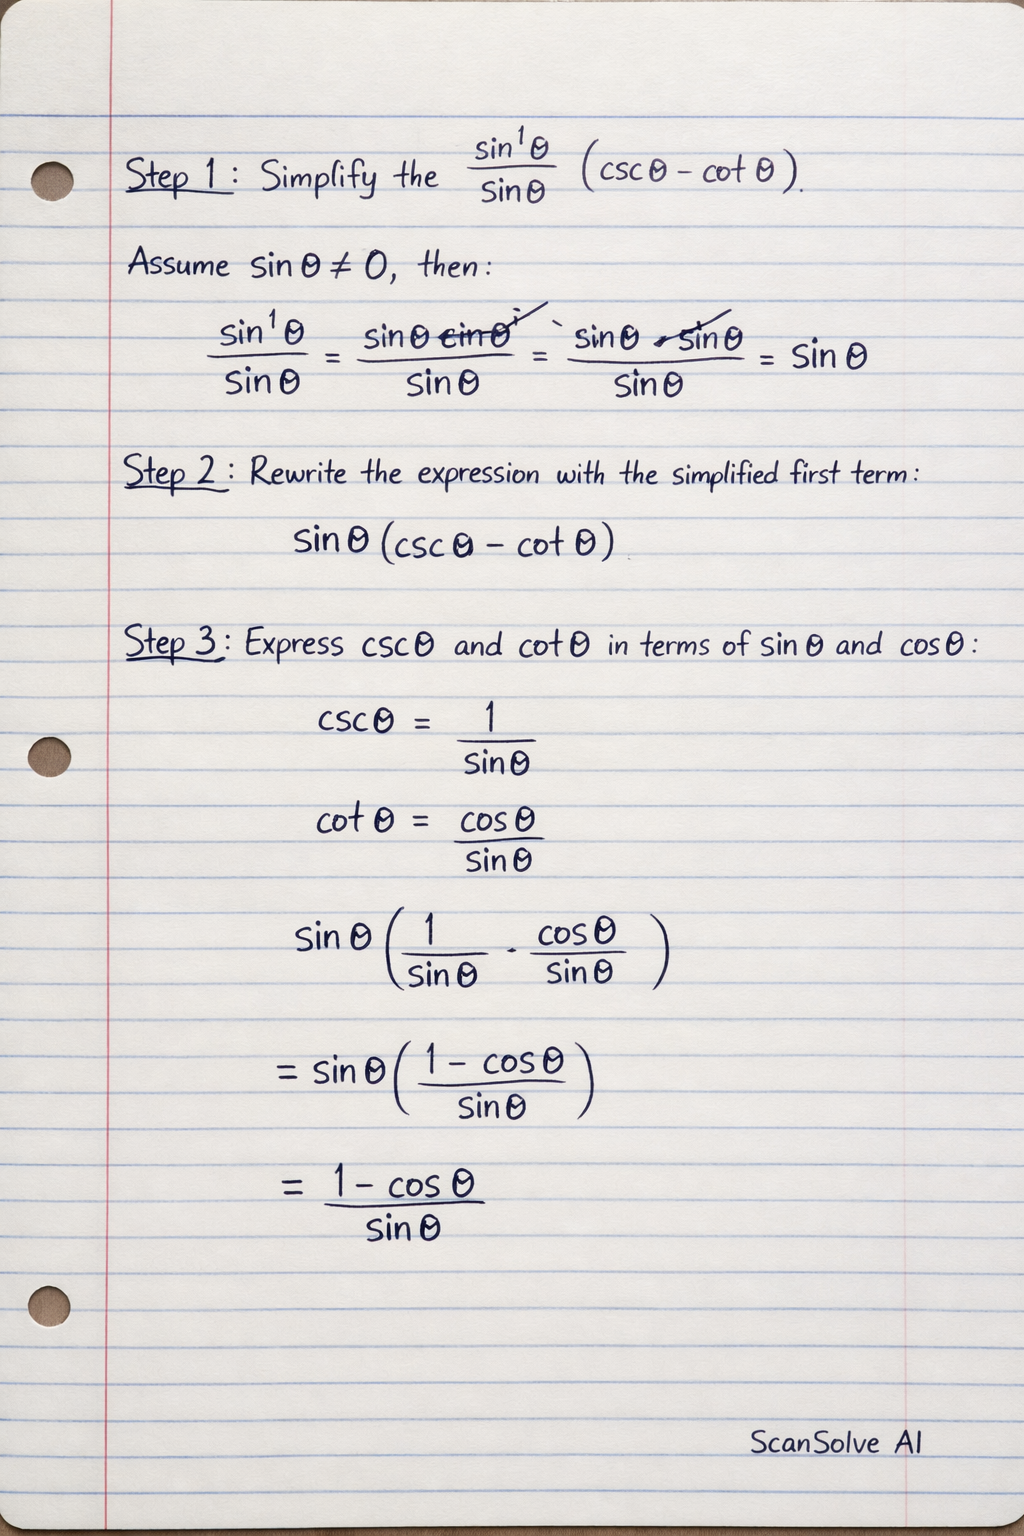 Step 1: Simplify the sin¹θ/sinθ (cscθ - cot θ).
Assume sin θ ≠ 0, then:
sin¹θ/sinθ = sinθ sinθ/sinθ = sinθ · sinθ/sinθ = sin θ
Step 2: Rewrite the expression with the simplified first term:
sin θ (csc θ - cot θ)
Step 3: Express cscθ and cotθ in terms of sin θ and cosθ:
cscθ = 1/sinθ
cot θ = cosθ/sinθ
sin θ (1/sinθ · cosθ/sinθ)
= sinθ (1 - cosθ/sinθ)
= 1 - cos θ/sin θ
ScanSolve AI